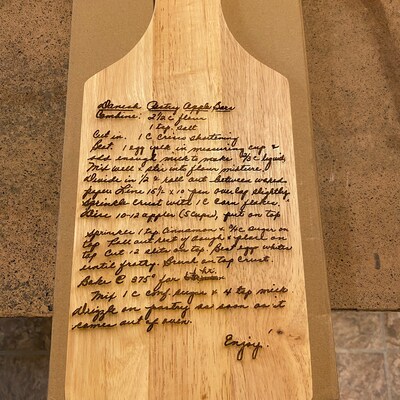 Danish Pastry Apple Bars
Combine: 2 1/2 C flour
1 tsp. salt
Cut in. 1 C Crisco shortening
Beat. 1 egg yolk in measuring cup &
add enough milk to make 2/3 C liquid,
Mix well & stir into flour mixture.
Divide in 1/2 & roll out between waxed
paper Line 15 1/2 x 10 pan overlap slightly
Sprinkle crust with 1 C corn flakes.
Slice 10-12 apples (5 cups), put on top
Sprinkle 1 tsp Cinnamon & 3/4 C sugar on
top Roll out rest of dough & place on
top Cut 12 slits on top. Beat egg white
until frothy. Brush on top crust.
Bake @ 375° for hr.
Mix 1 C conf. sugar & 4 tsp milk
Drizzle on pastry as soon as it
comes out of oven.
Enjoy!